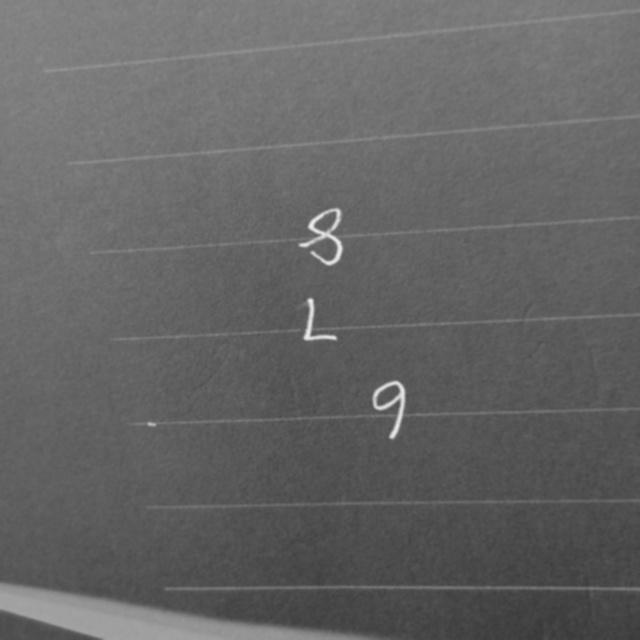 8
L
9